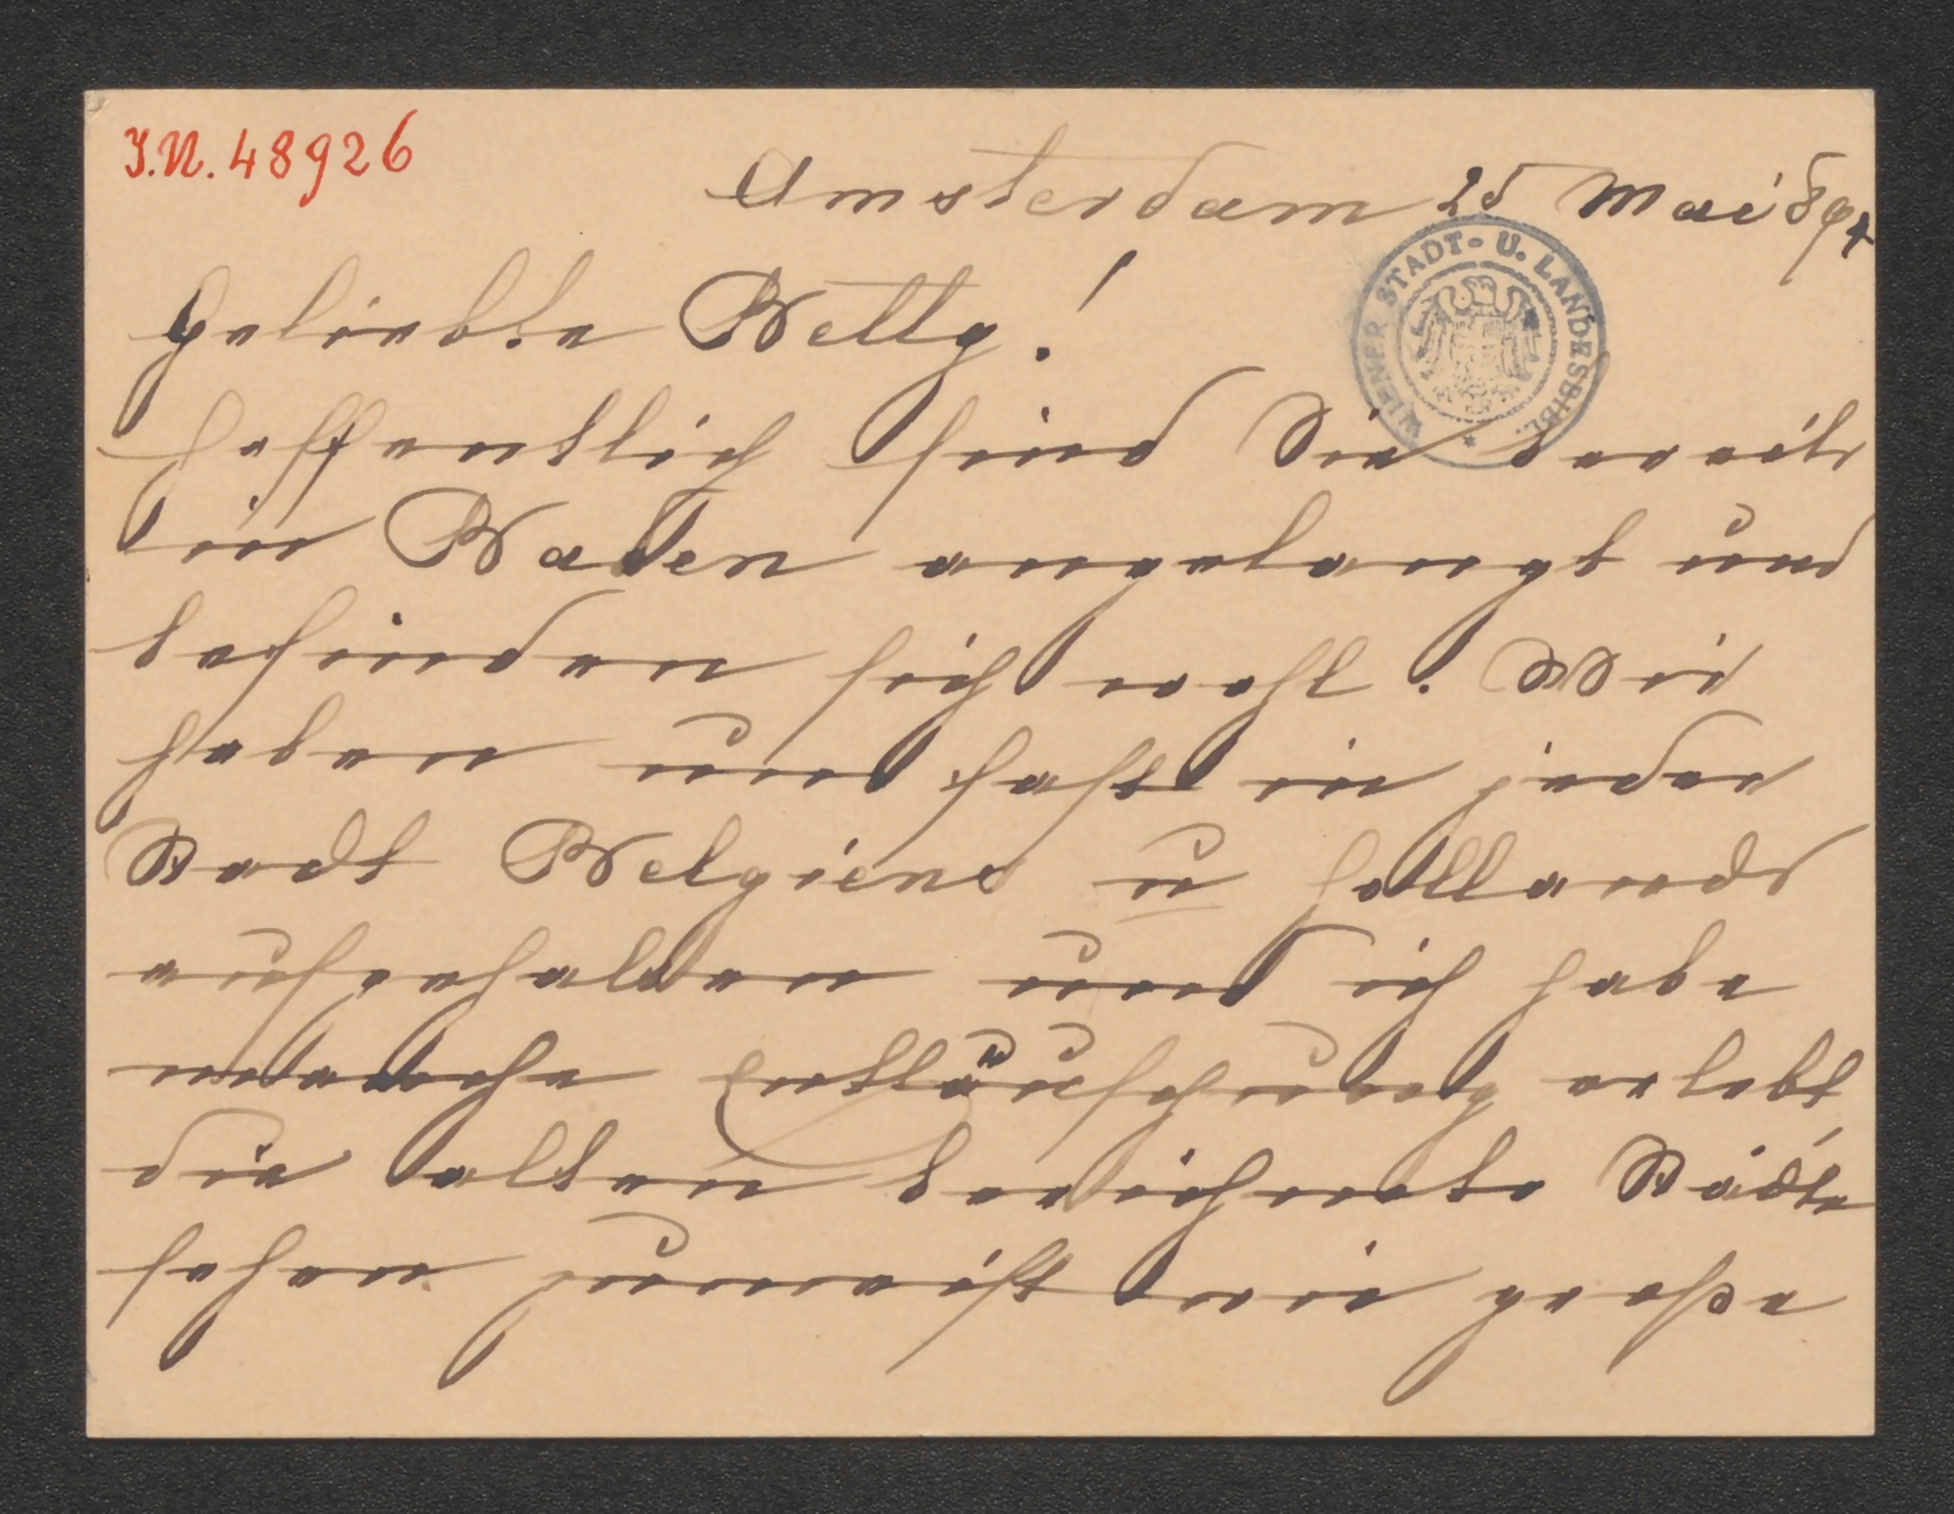 I.N. 48926
Amsterdam 25 Mai 894
WIENER STADT- U. LANDESBIBL.
Geliebte Betty!
hoffentlich sind Sie bereits
in Baden angelangt und
befinden sich wohl. Wir
haben uns fast in jeder
Stadt Belgiens u Hollands
aufgehalten und ich habe
manche Enttäuschung erlebt
die alten berühmte Städte
sehen zumeist wie große